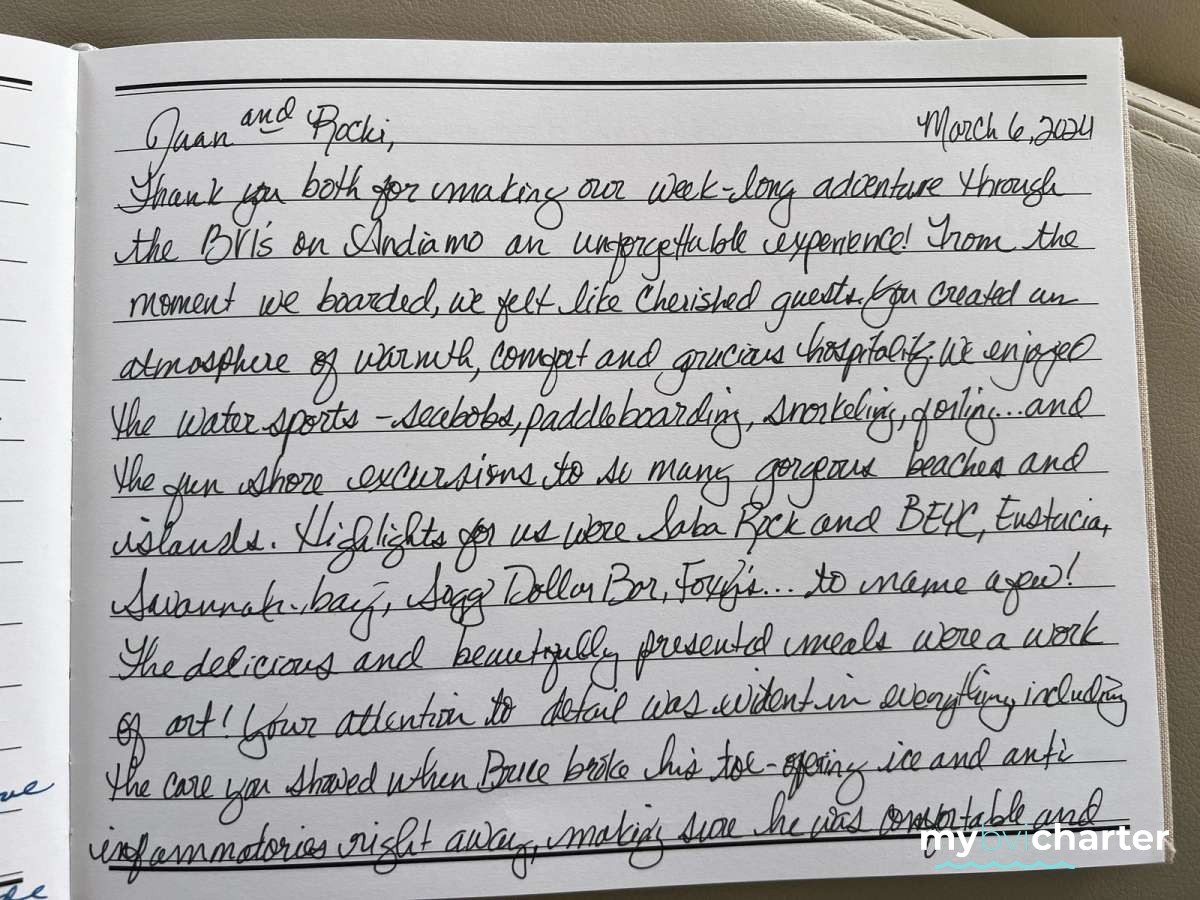 Juan and Rocki,
March 6, 2024
Thank you both for making our week-long adventure through
the BVI's on Andiamo an unforgettable experience! From the
moment we boarded, we felt like cherished guests. You created an
atmosphere of warmth, comfort and gracious hospitality. We enjoyed
the water sports - seabobs, paddleboarding, snorkeling, foiling...and
the fun shore excursions to so many gorgeous beaches and
islands. Highlights for us were Saba Rock and BEYC, Eustacia,
Savannah bay, Soggy Dollar Bar, Foxy's... to name a few!
The delicious and beautifully presented meals were a work
of art! Your attention to detail was evident in everything, including
the care you showed when Bruce broke his toe - offering ice and anti
inflammatories right away, making sure he was comfortable and
mybvicharter